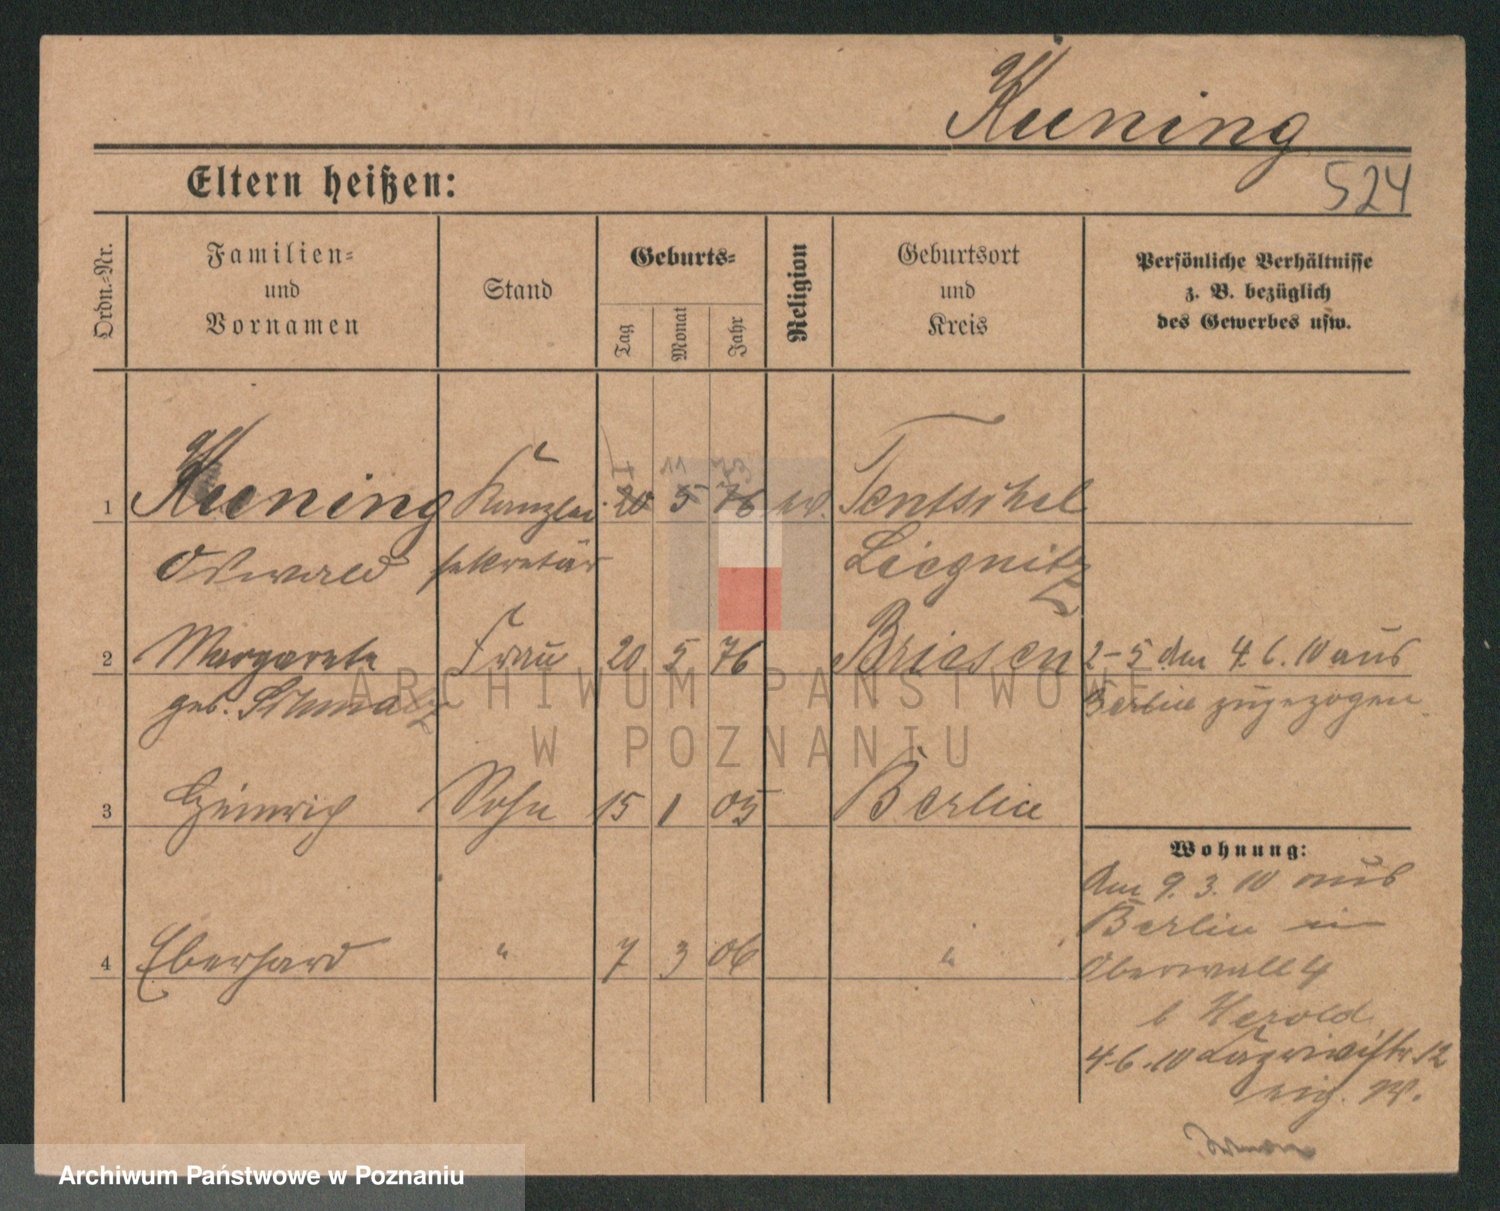 Kuning
Eltern heißen:
524
Ordn.-Nr.
Familien-
und
Vornamen
Stand
Geburts-
Tag
Monat
Jahr
Religion
Geburtsort
und
Kreis
Persönliche Verhältnisse
z. B. bezüglich
des Gewerbes usw.
1 Kuning Kanzlei 20 5 76 Tentschel
Oswald sekretär Liegnitz
2 Margarete Frau 20 5 76 Briesen 2-5 den 4.6.10 aus
geb. Berlin zugezogen
3 Heinrich Sohn 15 1 05 Berlin
Wohnung:
Am 9.3.10 aus
Berlin in
4 Eberhard " 7 3 06 "
Oberwall 4
b Herold
4-6.10 12
eig. W.
ARCHIWUM PAŃSTWOWE
W POZNANIU
Archiwum Państwowe w Poznaniu